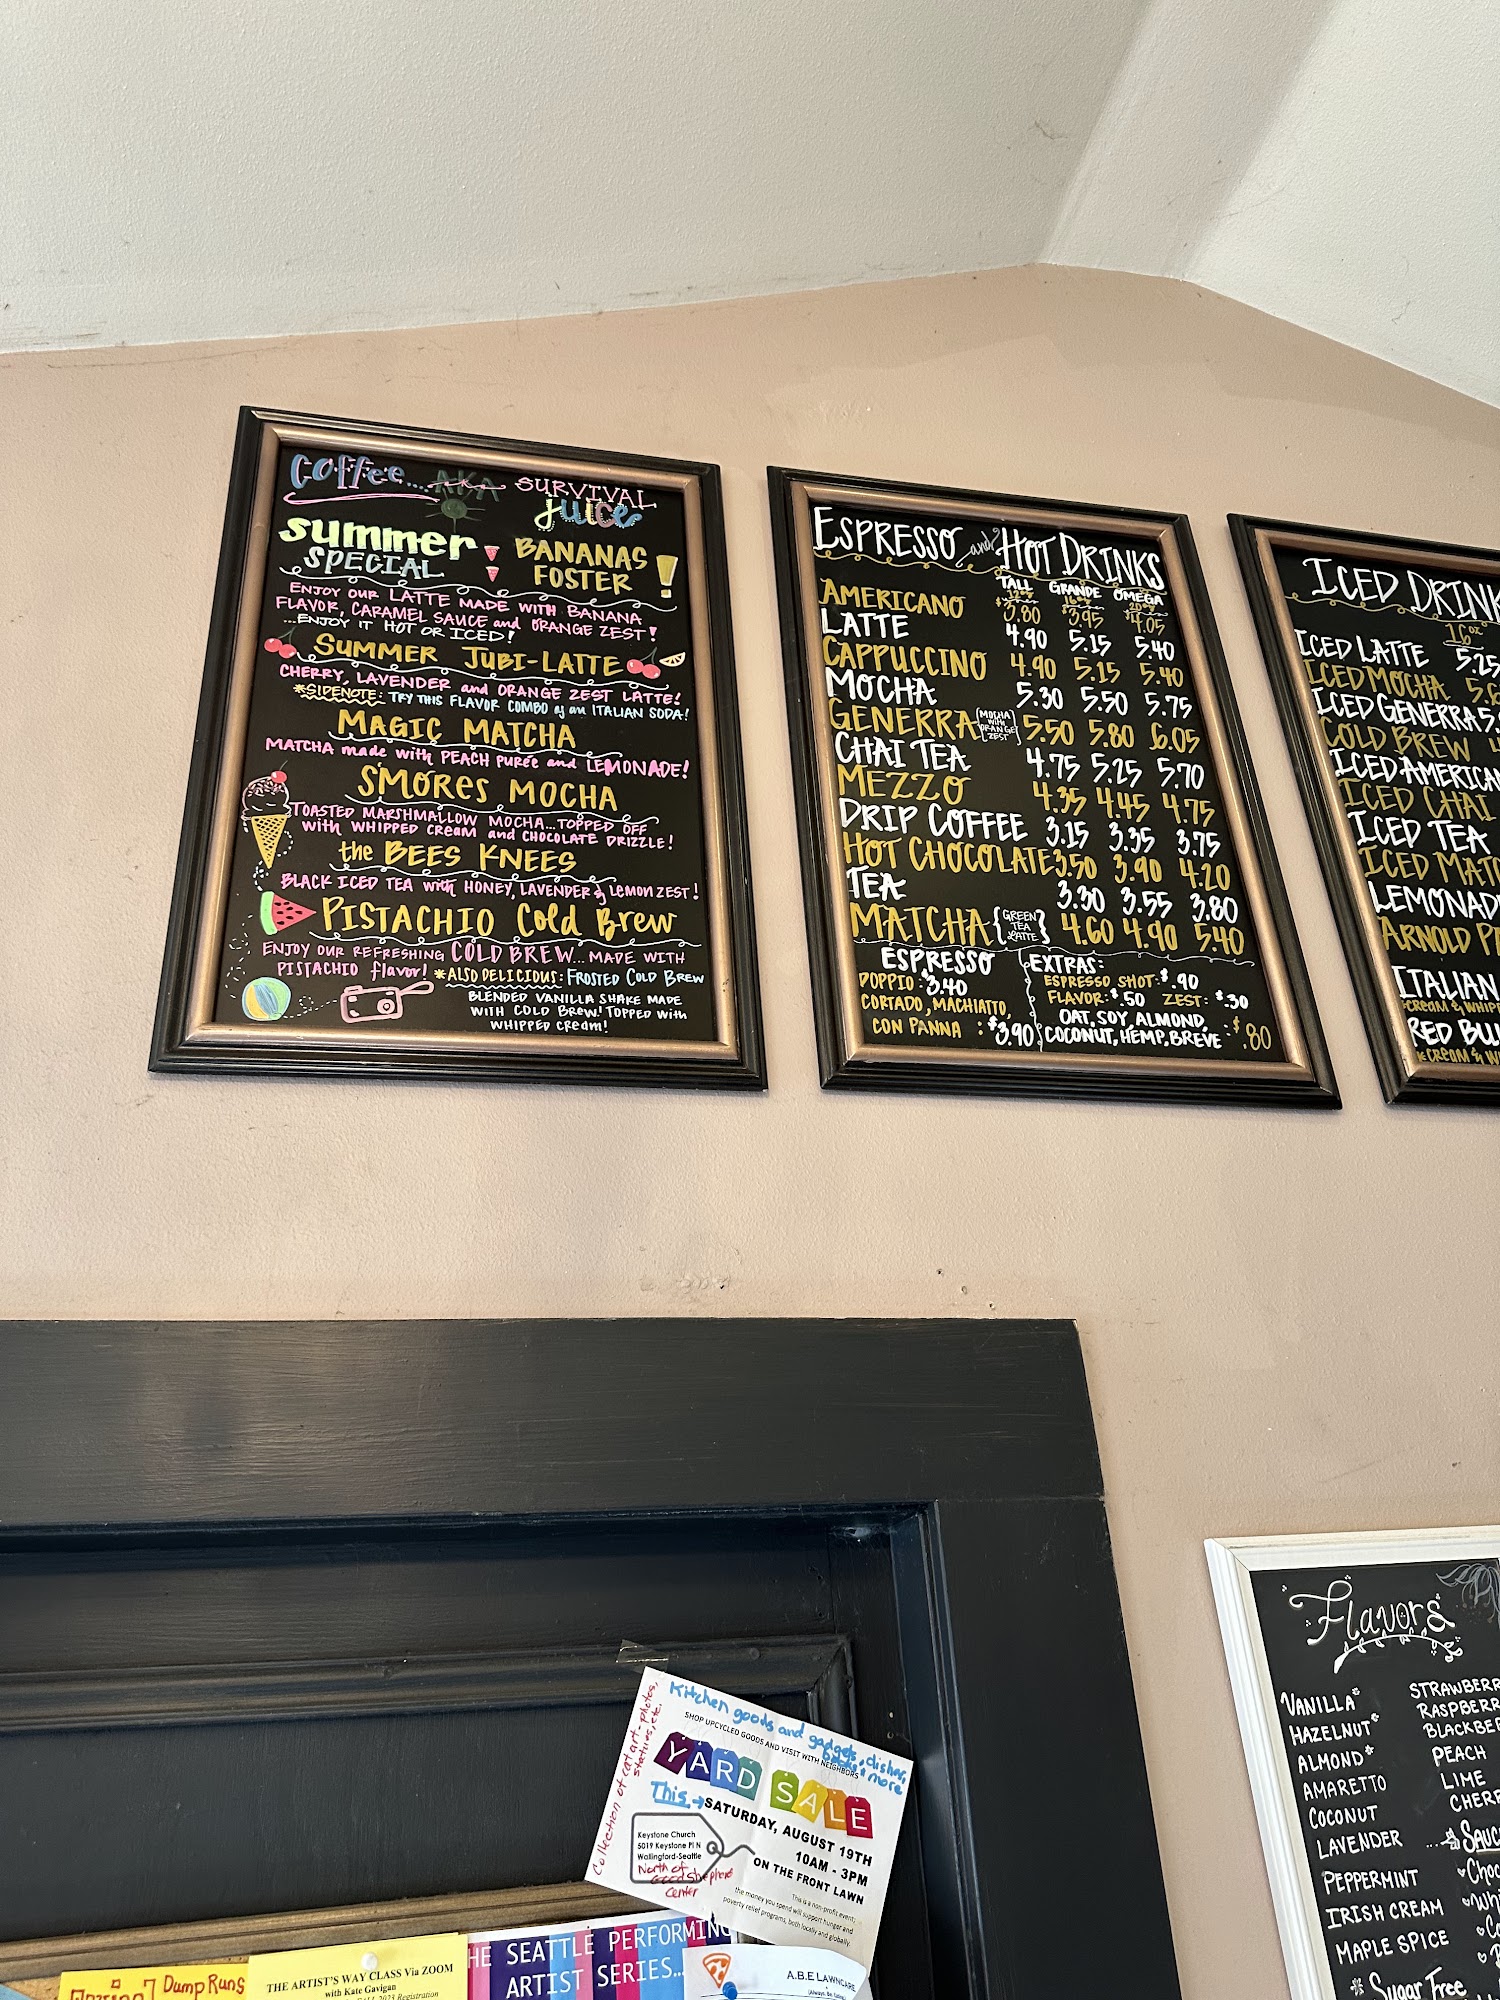 Coffee.... AKA SURVIVAL
juice
summer
SPECIAL
BANANAS
FOSTER!
ENJOY OUR LATTE MADE WITH BANANA
FLAVOR, CARAMEL SAUCE and ORANGE ZEST!
...ENJOY IT HOT OR ICED!
SUMMER JUBI-LATTE
CHERRY, LAVENDER and ORANGE ZEST LATTE!
*SIDENOTE: TRY THIS FLAVOR COMBO of an ITALIAN SODA!
MAGIC MATCHA
MATCHA made with PEACH PUREE and LEMONADE!
S'MORES MOCHA
TOASTED MARSHMALLOW MOCHA...TOPPED OFF
with WHIPPED CREAM and CHOCOLATE DRIZZLE!
the BEES KNEES
BLACK ICED TEA with HONEY, LAVENDER & LEMON ZEST!
PISTACHIO Cold Brew
ENJOY OUR REFRESHING COLD BREW... MADE WITH
PISTACHIO flavor! *ALSO DELICIOUS: FROSTED COLD BREW
BLENDED VANILLA SHAKE MADE
WITH COLD BREW! TOPPED with
WHIPPED CREAM!
ESPRESSO and HOT DRINKS
TALL GRANDE OMEGA
12oz 16oz 20oz
AMERICANO $3.80 $3.95 $4.05
LATTE 4.90 5.15 5.40
CAPPUCCINO 4.90 5.15 5.40
MOCHA 5.30 5.50 5.75
GENERRA [MOCHA WITH ORANGE ZEST] 5.50 5.80 6.05
CHAI TEA 4.75 5.25 5.70
MEZZO 4.35 4.45 4.75
DRIP COFFEE 3.15 3.35 3.75
HOT CHOCOLATE 3.50 3.90 4.20
TEA 3.30 3.55 3.80
MATCHA {GREEN TEA LATTE} 4.60 4.90 5.40
ESPRESSO
DOPPIO: $3.40
CORTADO, MACHIATTO,
CON PANNA : $3.90
EXTRAS:
ESPRESSO SHOT: $.90
FLAVOR: $.50 ZEST: $.30
OAT, SOY, ALMOND,
COCONUT, HEMP, BREVE : $.80
ICED DRINK
16oz
ICED LATTE 5.25
ICED MOCHA
ICED GENERRA
COLD BREW
ICED AMERICAN
ICED CHAI
ICED TEA
ICED MATC
LEMONAD
ARNOLD P
ITALIAN
*CREAM & WHIP
RED BU
*CREAM & W
Flavors
VANILLA*
HAZELNUT*
ALMOND*
AMARETTO
COCONUT
LAVENDER
PEPPERMINT
IRISH CREAM
MAPLE SPICE
* Sugar Free
STRAWBERR
RASPBERR
BLACKBE
PEACH
LIME
CHERR
SAUC
Choc
Kitchen goods and gadgets, dishes,
books & more
SHOP UPCYCLED GOODS AND VISIT WITH NEIGHBORS
YARD SALE
This → SATURDAY, AUGUST 19TH
10AM - 3PM
ON THE FRONT LAWN
Keystone Church
5019 Keystone Pl N
Wallingford-Seattle
North of
Good Shepherd
Center
This is a non-profit event;
the money you spend will support hunger and
poverty relief programs, both locally and globally.
Collection of cat art - photos,
statues, etc.
Dump Runs
THE ARTIST'S WAY CLASS Via ZOOM
with Kate Gavigan
2023 Registration
HE SEATTLE PERFORMING
ARTIST SERIES...
A.B.E LAWNCARE